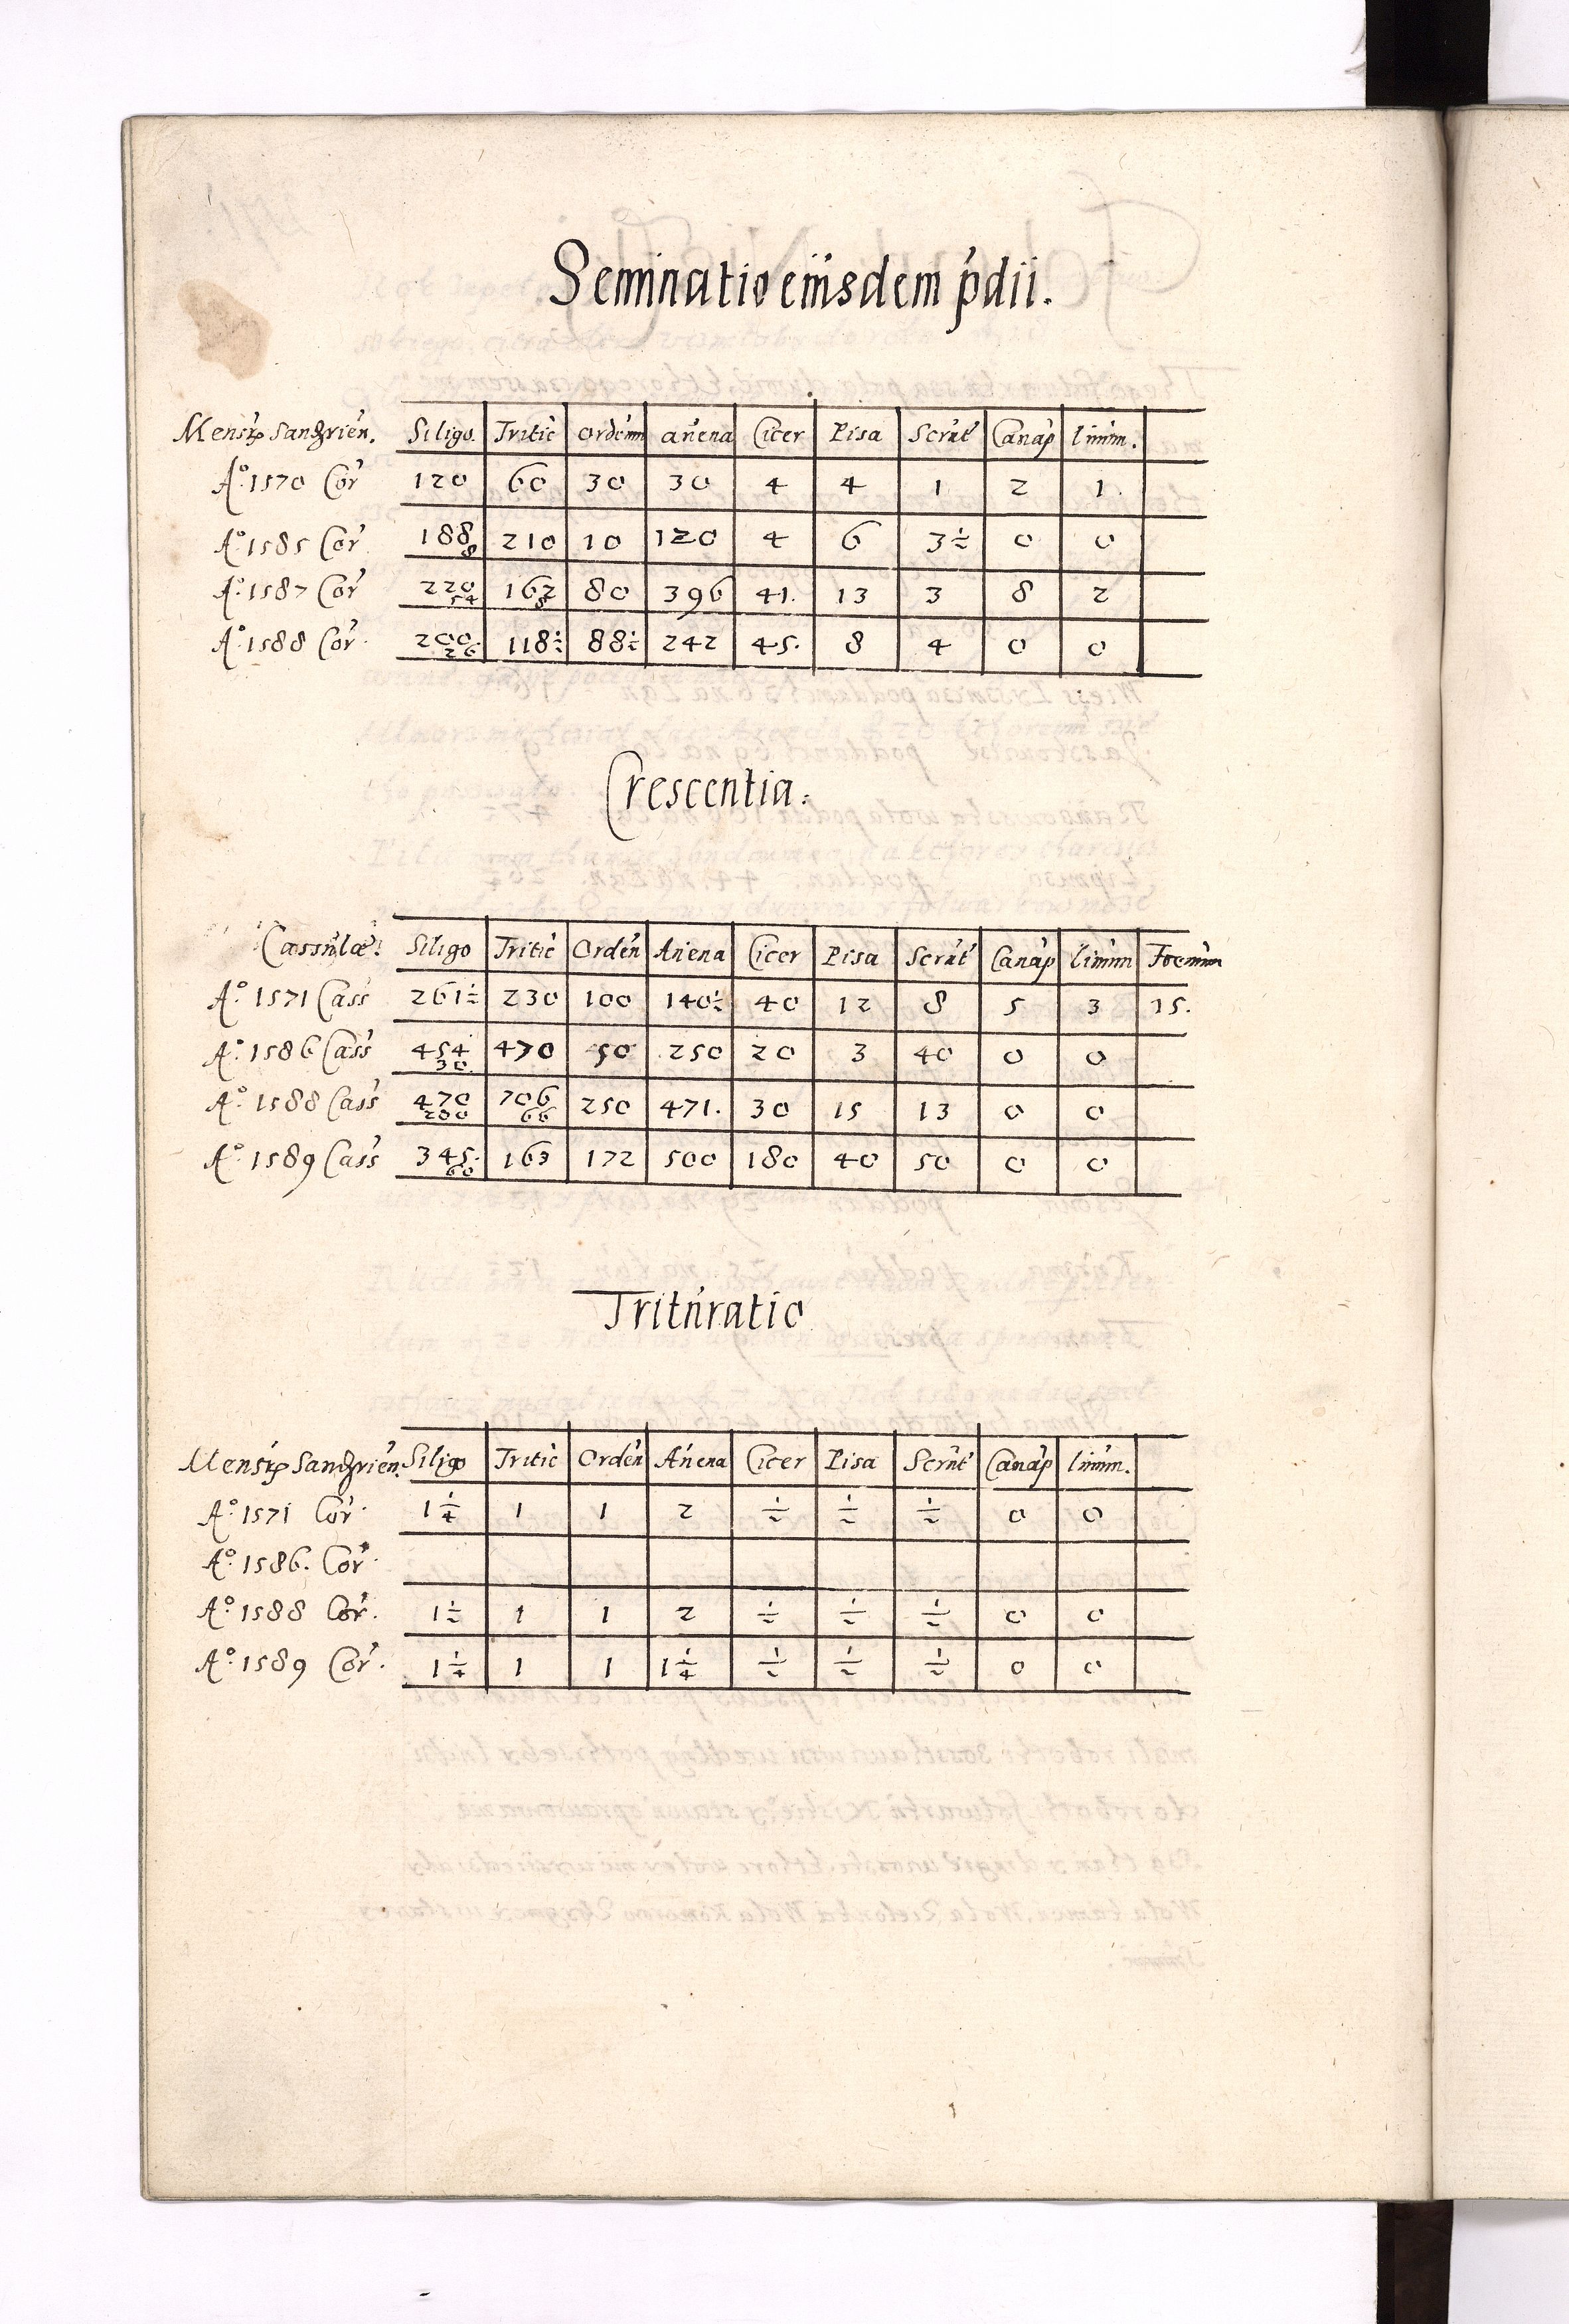 Seminatio eiusdem pdii.
Mensur Sandrien. Siligo. Tritic Ordeum auena Cicer Pisa Scrut Canap linum.
Ao. 1570 Cor 120 60 30 30 4 4 1 2 1.
Ao. 1585 Cor 188 8 210 10 120 4 6 3 1/2 0 0
Ao. 1587 Cor 220 54 162 8 80 396 41. 13 3 8 2
Ao. 1588 Cor. 200. 26 118 1/2 88 1/2 242 45. 8 4 0 0
Crescentia.
Cassulae. Siligo Tritic Orden Auena Cicer Pisa Scrut Canap linum Foenum
Ao. 1571 Cass 261 1/2 230 100 140 1/2 40 12 8 5 3 15.
Ao. 1586 Cass 454 30 470 50 250 20 3 40 0 0
Ao. 1588 Cass 470 200 706 66 250 471. 30 15 13 0 0
Ao. 1589 Cass 345. 60 163 172 500 180 40 50 0 0
Trituratio
Mensur Sandrien. Siligo Tritic Orden Auena Cicer Pisa Scrut Canap linum.
Ao. 1571 Cor. 1 1/4 1 1 2 1/2 1/2 1/2 0 0
Ao. 1586. Cor.
Ao. 1588 Cor. 1 1/2 1 1 2 1/2 1/2 1/2 0 0
Ao. 1589 Cor. 1 1/4 1 1 1 1/4 1/2 1/2 1/2 0 0